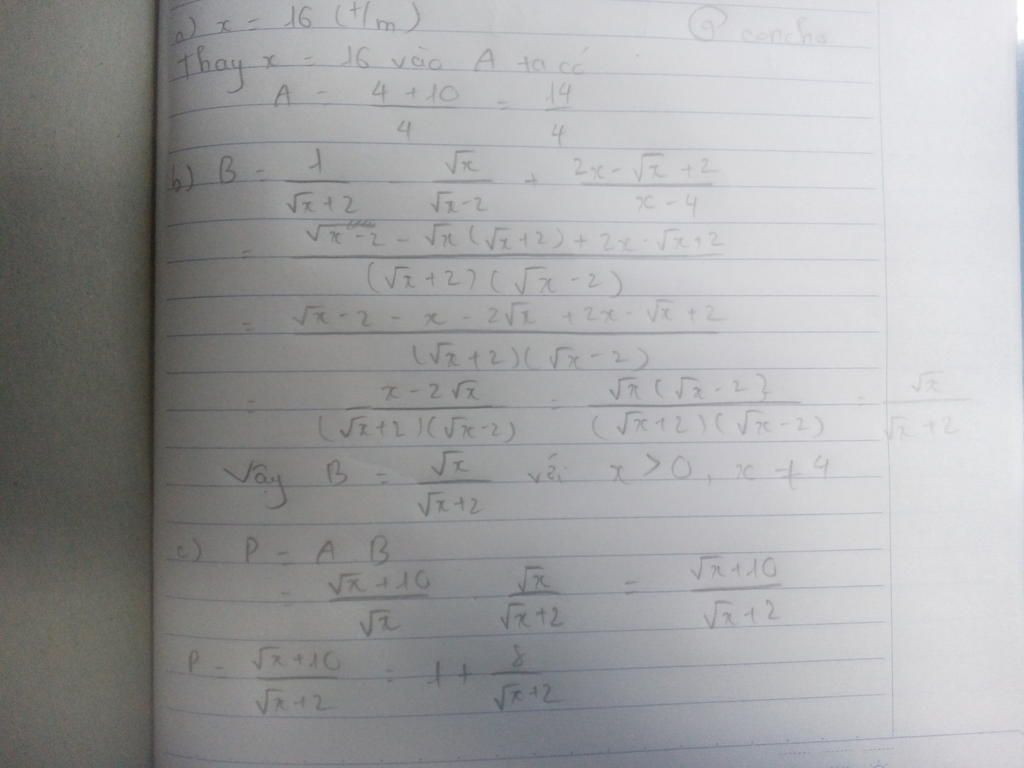 a) x = 16 (t/m)
Thay x = 16 vào A ta có
A = (4 + 10)/4 = 14/4
b) B = 1/(√x+2) - √x/(√x-2) + (2x-√x+2)/(x-4)
= (√x-2 - √x(√x+2) + 2x-√x+2)/((√x+2)(√x-2))
= (√x-2 - x - 2√x + 2x-√x+2)/((√x+2)(√x-2))
= (x-2√x)/((√x+2)(√x-2)) = (√x(√x-2))/((√x+2)(√x-2)) = √x/(√x+2)
Vậy B = √x/(√x+2) với x > 0, x ≠ 4
c) P = A B
= (√x+10)/√x . √x/(√x+2) = (√x+10)/(√x+2)
P = (√x+10)/(√x+2) = 1 + 8/(√x+2)